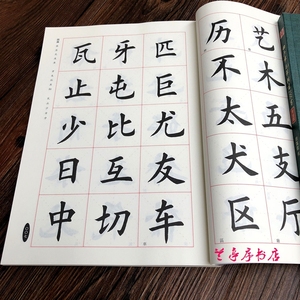 瓦 牙 匹
止 屯 巨
少 比 尤
日 互 友
中 切 车
历 艺
不 木
太 五
犬 支
区 厅
兰亭序书店